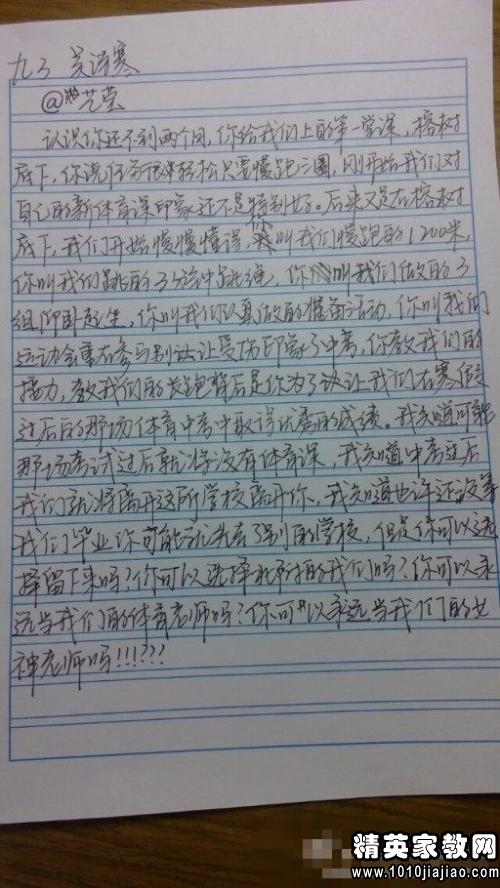 九3 吴诗寒
@ 艺莹
认识你还不到两个月,你给我们上的第一堂课,榕树
底下,你说任务很轻松只要慢跑三圈,刚开始我们对
自己的新体育课印象还不是特别好。后来又是在榕树
底下,我们开始慢慢懂得,你叫我们慢跑的1200米,
你叫我们跳的3分钟跳绳,你叫我们做的3
组仰卧起坐,你叫我们认真做的准备活动,你叫我们
运动会重在参与别让受伤影响了中考,你教我们的
接力,教我们的长跑背后是你为了让我们在寒假
过后的那场体育中考中取得优秀的成绩。我知道可能
那场考试过后就将没有体育课,我知道中考过后
我们就将离开这所学校离开你,我知道也许还没等
我们毕业你可能就先去了别的学校,但是你可以选
择留下来吗?你可以选择 的我们吗?你可以永
远当我们的体育老师吗?你可以永远当我们的女
神老师吗!!!???
精英家教网
www.1010jiajiao.com